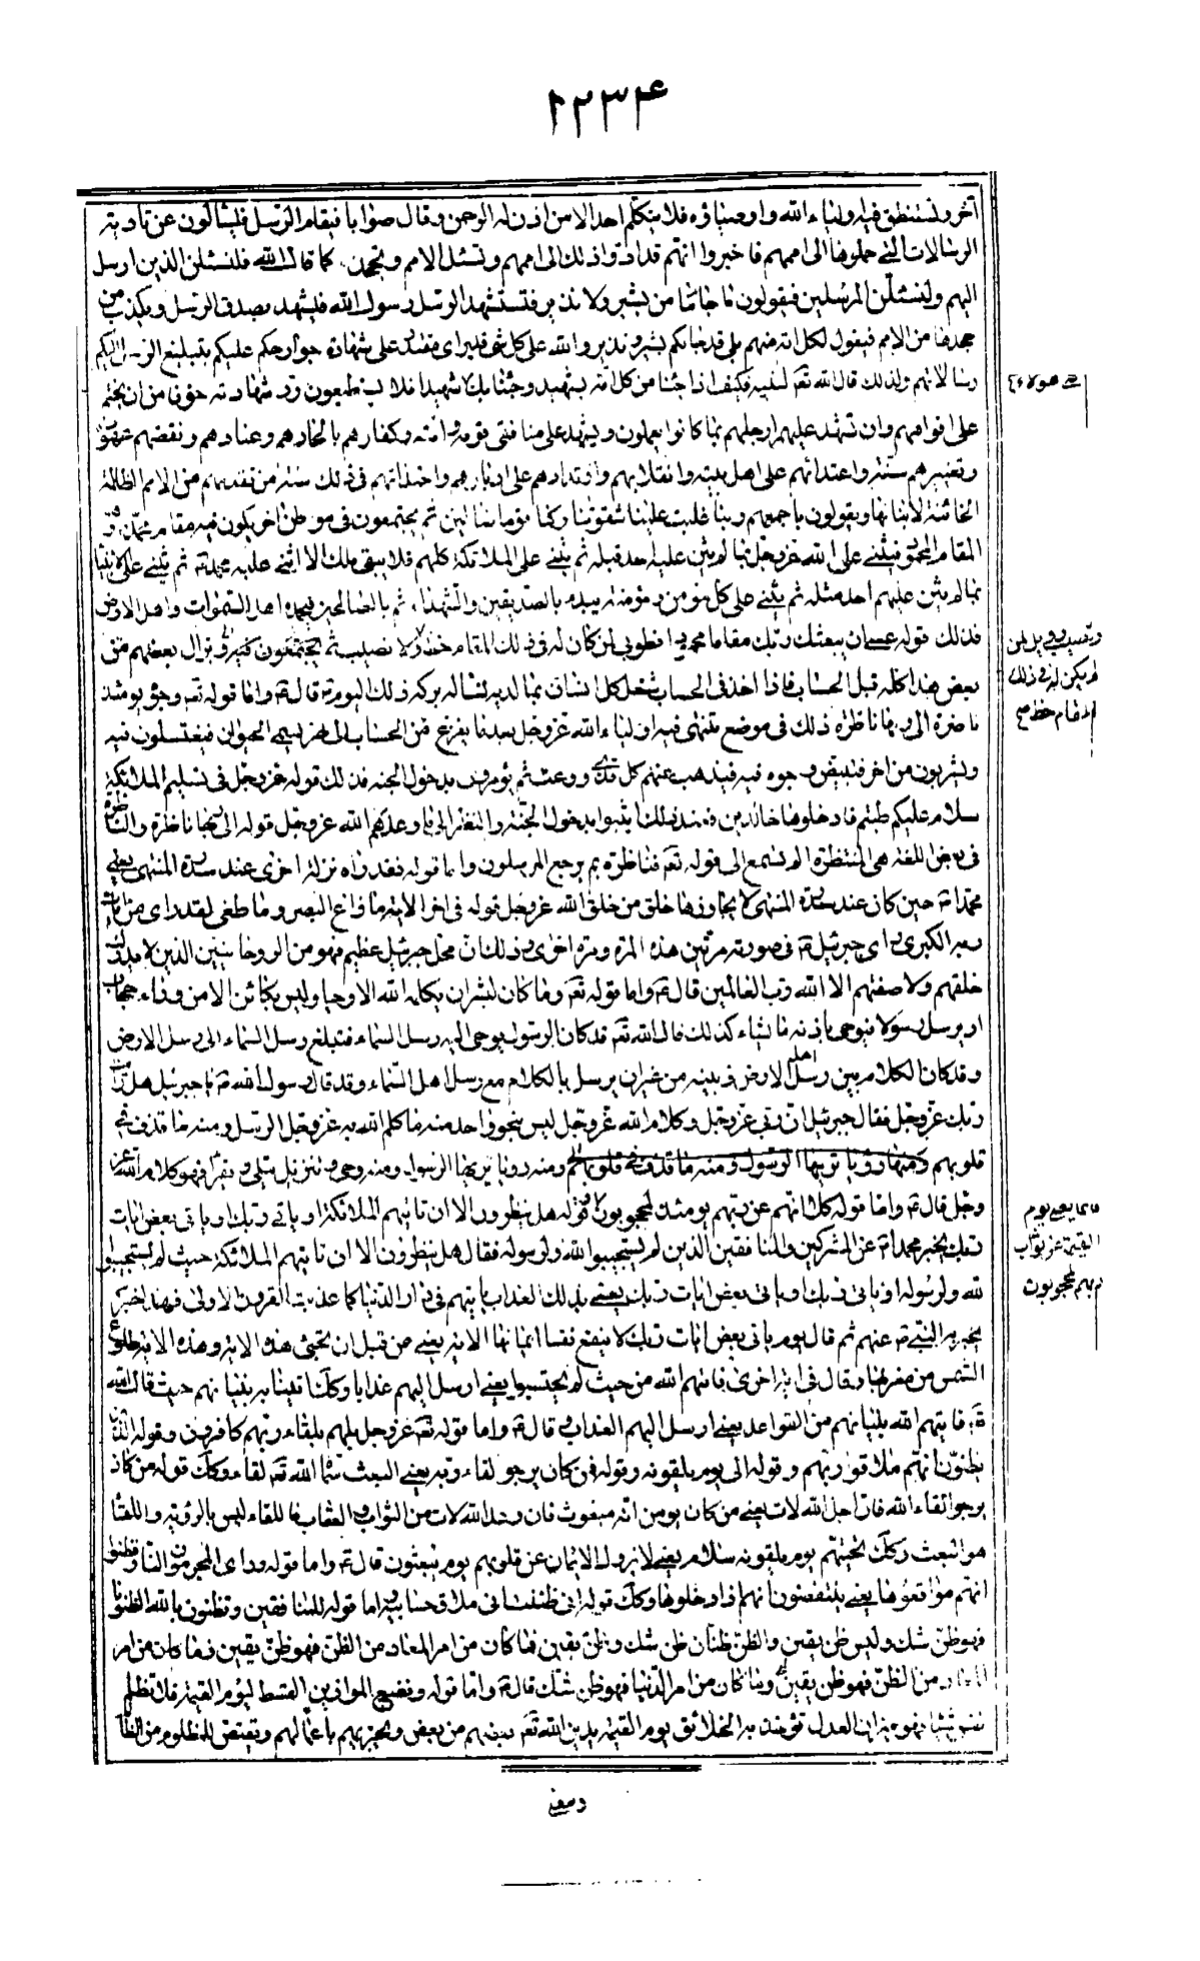 ١٢٣۴
آخر ويستنطق فيه اولياء الله واوصياؤه فلا يتكلم احد الا من اذن له الرحمن وقال صوابا فيقام الرسل فيسالون عن تادية
الرسالات التي حملوها الى اممهم فاخبروا انهم قد ادوا ذلك الى اممهم وتسئل الامم وتجحد كما قال الله فلنسئلن الذين ارسل
اليهم ولنسئلن المرسلين فيقولون ما جائنا من بشير ولا نذير فتستشهد الرسل رسول الله فيشهد بصدق الرسل ويكذب من
جحدها من الامم فيقول لكل امة منهم بلى قد جائكم بشير ونذير والله على كل شئ قدير اى مقتدر على شهادة جوارحكم عليكم بتبليغ الرسل اليكم
رسالاتهم ولذلك قال الله تعم لنبيه فكيف اذا جئنا من كل امة بشهيد وجئنا بك شهيدا فلا يستطيعون رد شهادته خوفا من ان يختم
على هولاء
على افواههم وان تشهد عليهم ارجلهم بما كانوا يعملون ويشهد على منافقى قومه وامته وكفارهم بالحادهم وعنادهم ونقضهم عهوده
وتغييرهم سنته واعتدائهم على اهل بيته وانقلابهم وارتدادهم على ادبارهم واحتذائهم في ذلك سنة من تقدمهم من الامم الظالمة
الخائنة لانبيائها ويقولون باجمعهم ربنا غلبت علينا شقوتنا وكنا قوما ضالين ثم يجتمعون في موطن اخر يكون فيه مقام محمد وهو
المقام المحمود فيثني على الله عز وجل بما لم يثن عليه احد قبله ثم يثني على الملائكة كلهم فلا يبقى ملك الا اثنى عليه محمد ثم يثني على الانبياء
بما لم يثن عليهم احد مثله ثم يثني على كل مؤمن ومؤمنة يبدء بالصديقين والشهداء ثم بالصالحين فيحمده اهل السموات واهل الارض
فذلك قوله عسى ان يبعثك ربك مقاما محمودا فطوبى لمن كان له في ذلك المقام حظ ولا نصيب ثم يجتمعون كثيرة ويزال بعضهم من
ونصيب وويل لمن
لم يكن له في ذلك
المقام حظ صح
بعض هذا كله قبل الحساب فاذا اخذ في الحساب شغل كل انسان بما لديه نسئال بركة ذلك اليوم قال واما قوله تعم وجوه يومئذ
ناضرة الى ربها ناظرة ذلك في موضع ينتهى فيه اولياء الله عز وجل بعد ما يفرغ من الحساب الى نهر يسمى الحيوان فيغتسلون فيه
ويشربون من اخر فتبيض وجوههم فيذهب عنهم كل قذى ووعث ثم يؤمرون بدخول الجنة فذلك قوله عز وجل في تسليم الملائكة
سلام عليكم طبتم فادخلوها خالدين فعند ذلك اثيبوا بدخول الجنة والنظر الى ما وعدهم الله عز وجل قوله الى ربها ناظرة والناظرة
في بعض اللغة هي المنتظرة الم تسمع الى قوله تعم فناظرة بم يرجع المرسلون واما قوله فقد راه نزلة اخرى عند سدرة المنتهى يعني
محمدا حين كان عند سدرة المنتهى لا يجاوزها خلق من خلق الله عز وجل قوله في اخر الاية ما زاغ البصر وما طغى لقد راى من ايات
ربه الكبرى راى جبرئيل في صورته مرتين هذه المرة ومرة اخرى وذلك ان خلق جبرئيل عظيم فهو من الروحانيين الذين لا يدرك
خلقهم ولا صفتهم الا الله رب العالمين قال واما قوله تعم وما كان لبشر ان يكلمه الله الا وحيا وليس بكائن الا من وراء حجاب
او يرسل رسولا فيوحى باذنه ما يشاء كذلك قال الله تعم قد كان الرسول يوحى اليه رسل السماء فتبلغ رسل السماء الى رسل الارض
وقد كان الكلام بين رسل اهل الارض وبينه من غير ان يرسل بالكلام مع رسل اهل السماء وقد قال رسول الله يا جبرئيل هل رايت
ربك عز وجل فقال جبرئيل ان ربي عز وجل وكلام الله عز وجل ليس بنحو واحد منه ما كلم الله به عز وجل الرسل ومنه ما قذف في
قلوبهم ومنه رؤيا يريها الرسول ومنه ما قذف في قلوبهم ومنه رؤيا يريها الرسول ومنه وحى وتنزيل يتلى ويقرأ فهو كلام الله عز
وجل قال واما قوله كلا انهم عن ربهم يومئذ لمحجوبون وقوله هل ينظرون الا ان تاتيهم الملائكة او ياتي ربك او ياتي بعض ايات
فانما يعني يوم
القيمة عن ثواب
ربهم لمحجوبون
ربك يخبر محمدا عن المشركين والمنافقين الذين لم يستجيبوا لله ولرسوله فقال هل ينظرون الا ان تاتيهم الملائكة حيث لم يستجيبوا
لله ولرسوله او ياتي ربك او ياتي بعض ايات ربك يعني بذلك العذاب ياتيهم في دار الدنيا كما عذبت القرون الاولى فهذا خبر
يخبر به النبي عنهم ثم قال يوم ياتي بعض ايات ربك لا ينفع نفسا ايمانها الاية يعني من قبل ان تجئ هذه الاية وهذه الاية طلوع
الشمس من مغربها وقال في اية اخرى فاتيهم الله من حيث لم يحتسبوا يعني ارسل اليهم عذابا وكذلك اتيانه بنيانهم حيث قال الله
فاتيهم الله بنيانهم من القواعد يعني ارسل اليهم العذاب قال واما قوله تعم عز وجل بل هم بلقاء ربهم كافرون وقوله الذين
يظنون انهم ملاقوا ربهم وقوله الى يوم يلقونه وقوله فمن كان يرجو لقاء ربه يعني البعث سماه الله تعم لقاء وكك قوله من كان
يرجو لقاء الله فان اجل الله لات يعني من كان يؤمن انه مبعوث فان وعد الله لات من الثواب والعقاب فاللقاء ليس بالرؤية واللقاء
هو البعث وكك تحيتهم يوم يلقونه سلام يعني لا يزول الايمان عن قلوبهم يوم يبعثون قال واما قوله وراى المجرمون النار فظنوا
انهم مواقعوها يعني يتيقنون انهم داخلوها وكك قوله انى ظننت انى ملاق حسابيه واما قوله للمنافقين وتظنون بالله الظنونا
فهو ظن شك وليس ظن يقين والظن ظنان ظن شك وظن يقين فما كان من امر المعاد من الظن فهو ظن يقين وما كان من امر
المعاد من الظن فهو ظن يقين وما كان من امر الدنيا فهو ظن شك قال واما قوله ونضع الموازين القسط ليوم القيمة فلا تظلم
نفس شيئا فهو ميزان العدل تؤخذ به الخلائق يوم القيمة يدين الله تعم بعضهم من بعض ويجزيهم باعمالهم ويقتص للمظلوم من الظالم
ومعنى